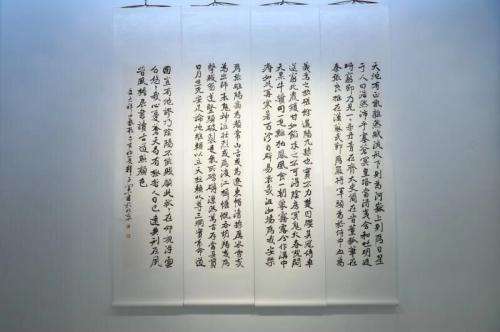 天地有正氣雜然賦流形下則為河嶽上則為日星
於人曰浩然沛乎塞蒼冥皇路當清夷含和吐明庭
時窮節乃見一一垂丹青在齊太史簡在晉董狐筆在
秦張良椎在漢蘇武節為嚴將軍頭為嵇侍中血為
義為之根嗟余遘陽九隸也實不力楚囚纓其冠傳車
送窮北鼎鑊甘如飴求之不可得陰房闃鬼火春院閟
天黑牛驥同一皂雞棲鳳凰食一朝蒙霧露分作溝中
瘠如此再寒暑百沴自辟易哀哉沮洳場為我安樂
為張睢陽齒為顏常山舌或為遼東帽清操厲冰雪或
為出師表鬼神泣壯烈或為渡江楫慷慨吞胡羯或為
擊賊笏逆豎頭破裂是氣所磅礴凜烈萬古存當其貫
日月生死安足論地維賴以立天柱賴以尊三綱實系命道
國豈有他繆巧陰陽不能賊顧此耿耿在仰視浮雲
白悠悠我心悲蒼天曷有極哲人日已遠典刑在夙
昔風簷展書讀古道照顏色